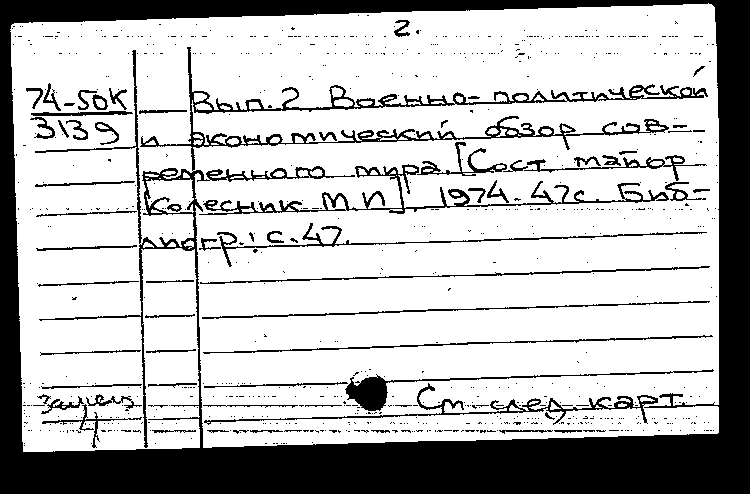 2.
74-50К
3139
Вып. 2. Военно-политической
и экономический обзор сов-
ременного мира. [Сост. майор
Колесник М.И]. 1974. 47с. Биб-
лиогр.: с.47.
См. след. карт.
4